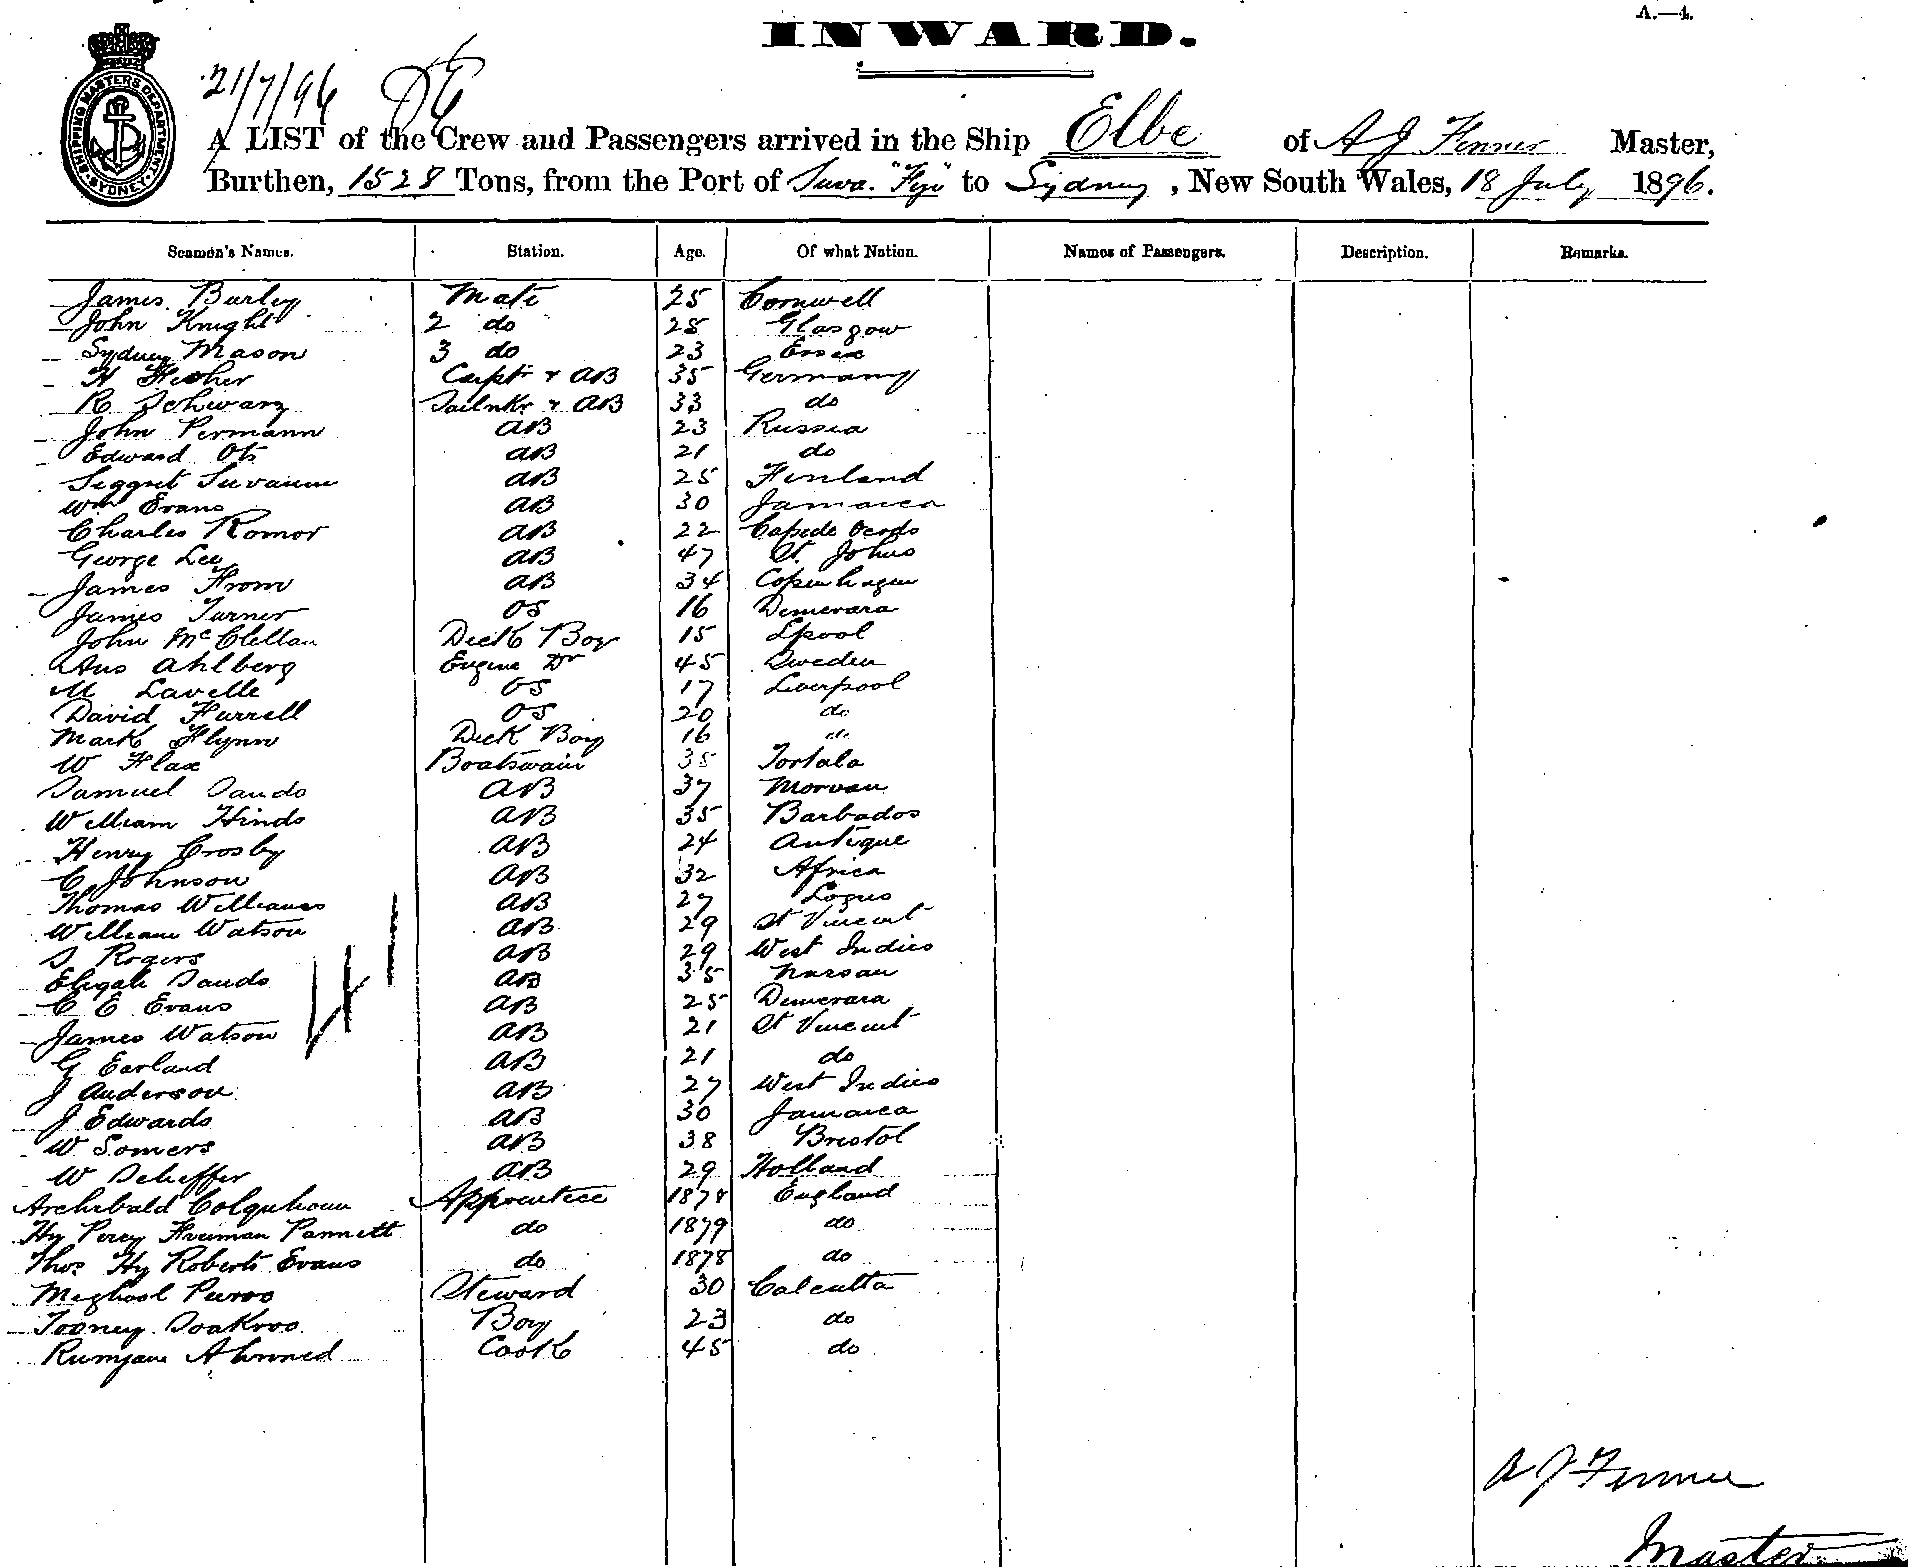 A.—4.
INWARD.
SHIPPING MASTERS DEPARTMENT
SYDNEY
21/7/96
A LIST of the Crew and Passengers arrived in the Ship Elbe of A J Fenner Master,
Burthen, 1528 Tons, from the Port of Suva. "Fiji" to Sydney, New South Wales, 18 July 1896.
Seamen's Names. Station. Age. Of what Nation. Names of Passengers. Description. Remarks.
James Burley Mate 25 Cornwell
John Knight 2 do 28 Glasgow
Sydney Mason 3 do 23 Essex
H Fisher Carptr & AB 35 Germany
R Schwarz Sailmkr & AB 33 do
John Permann AB 23 Russia
Edward Ots AB 21 do
AB 25 Finland
Wm Evans AB 30 Jamaica
Charles Romor AB 22 Capede Verds
George Lee AB 47 St. Johns
James From AB 34 Copenhagen
James Turner OS 16 Demerara
John McClellan Deck Boy 15 Lpool
Aus Ahlberg Engine Dr 45 Sweden
M Lavelle OS 17 Liverpool
David Farrell OS 20 do
Mark Flynn Deck Boy 16 do
W Flax Boatswain 35 Tortala
Samuel Sands AB 37 Morvan
William Hinds AB 35 Barbados
Henry Crosby AB 24 Antique
C Johnson AB 32 Africa
Thomas Williams AB 27 Logus
William Watson AB 29 St Vincent
S Rogers AB 29 West Indies
Elizah Sands AB 35 Nassau
C E Evans AB 25 Demerara
James Watson AB 21 St Vincent
G Earland AB 21 do
J Anderson AB 27 West Indies
J Edwards AB 30 Jamaica
W Somers AB 38 Bristol
W Scheffer AB 29 Holland
Archibald Colquhoun Apprentice 1878 England
Hy Percy Freeman Pannett do 1879 do
Thos Hy Roberts Evans do 1878 do
Steward 30 Calcutta
Tooney Boy 23 do
Rumjan Ahmed Cook 45 do
A J Fenner
Master